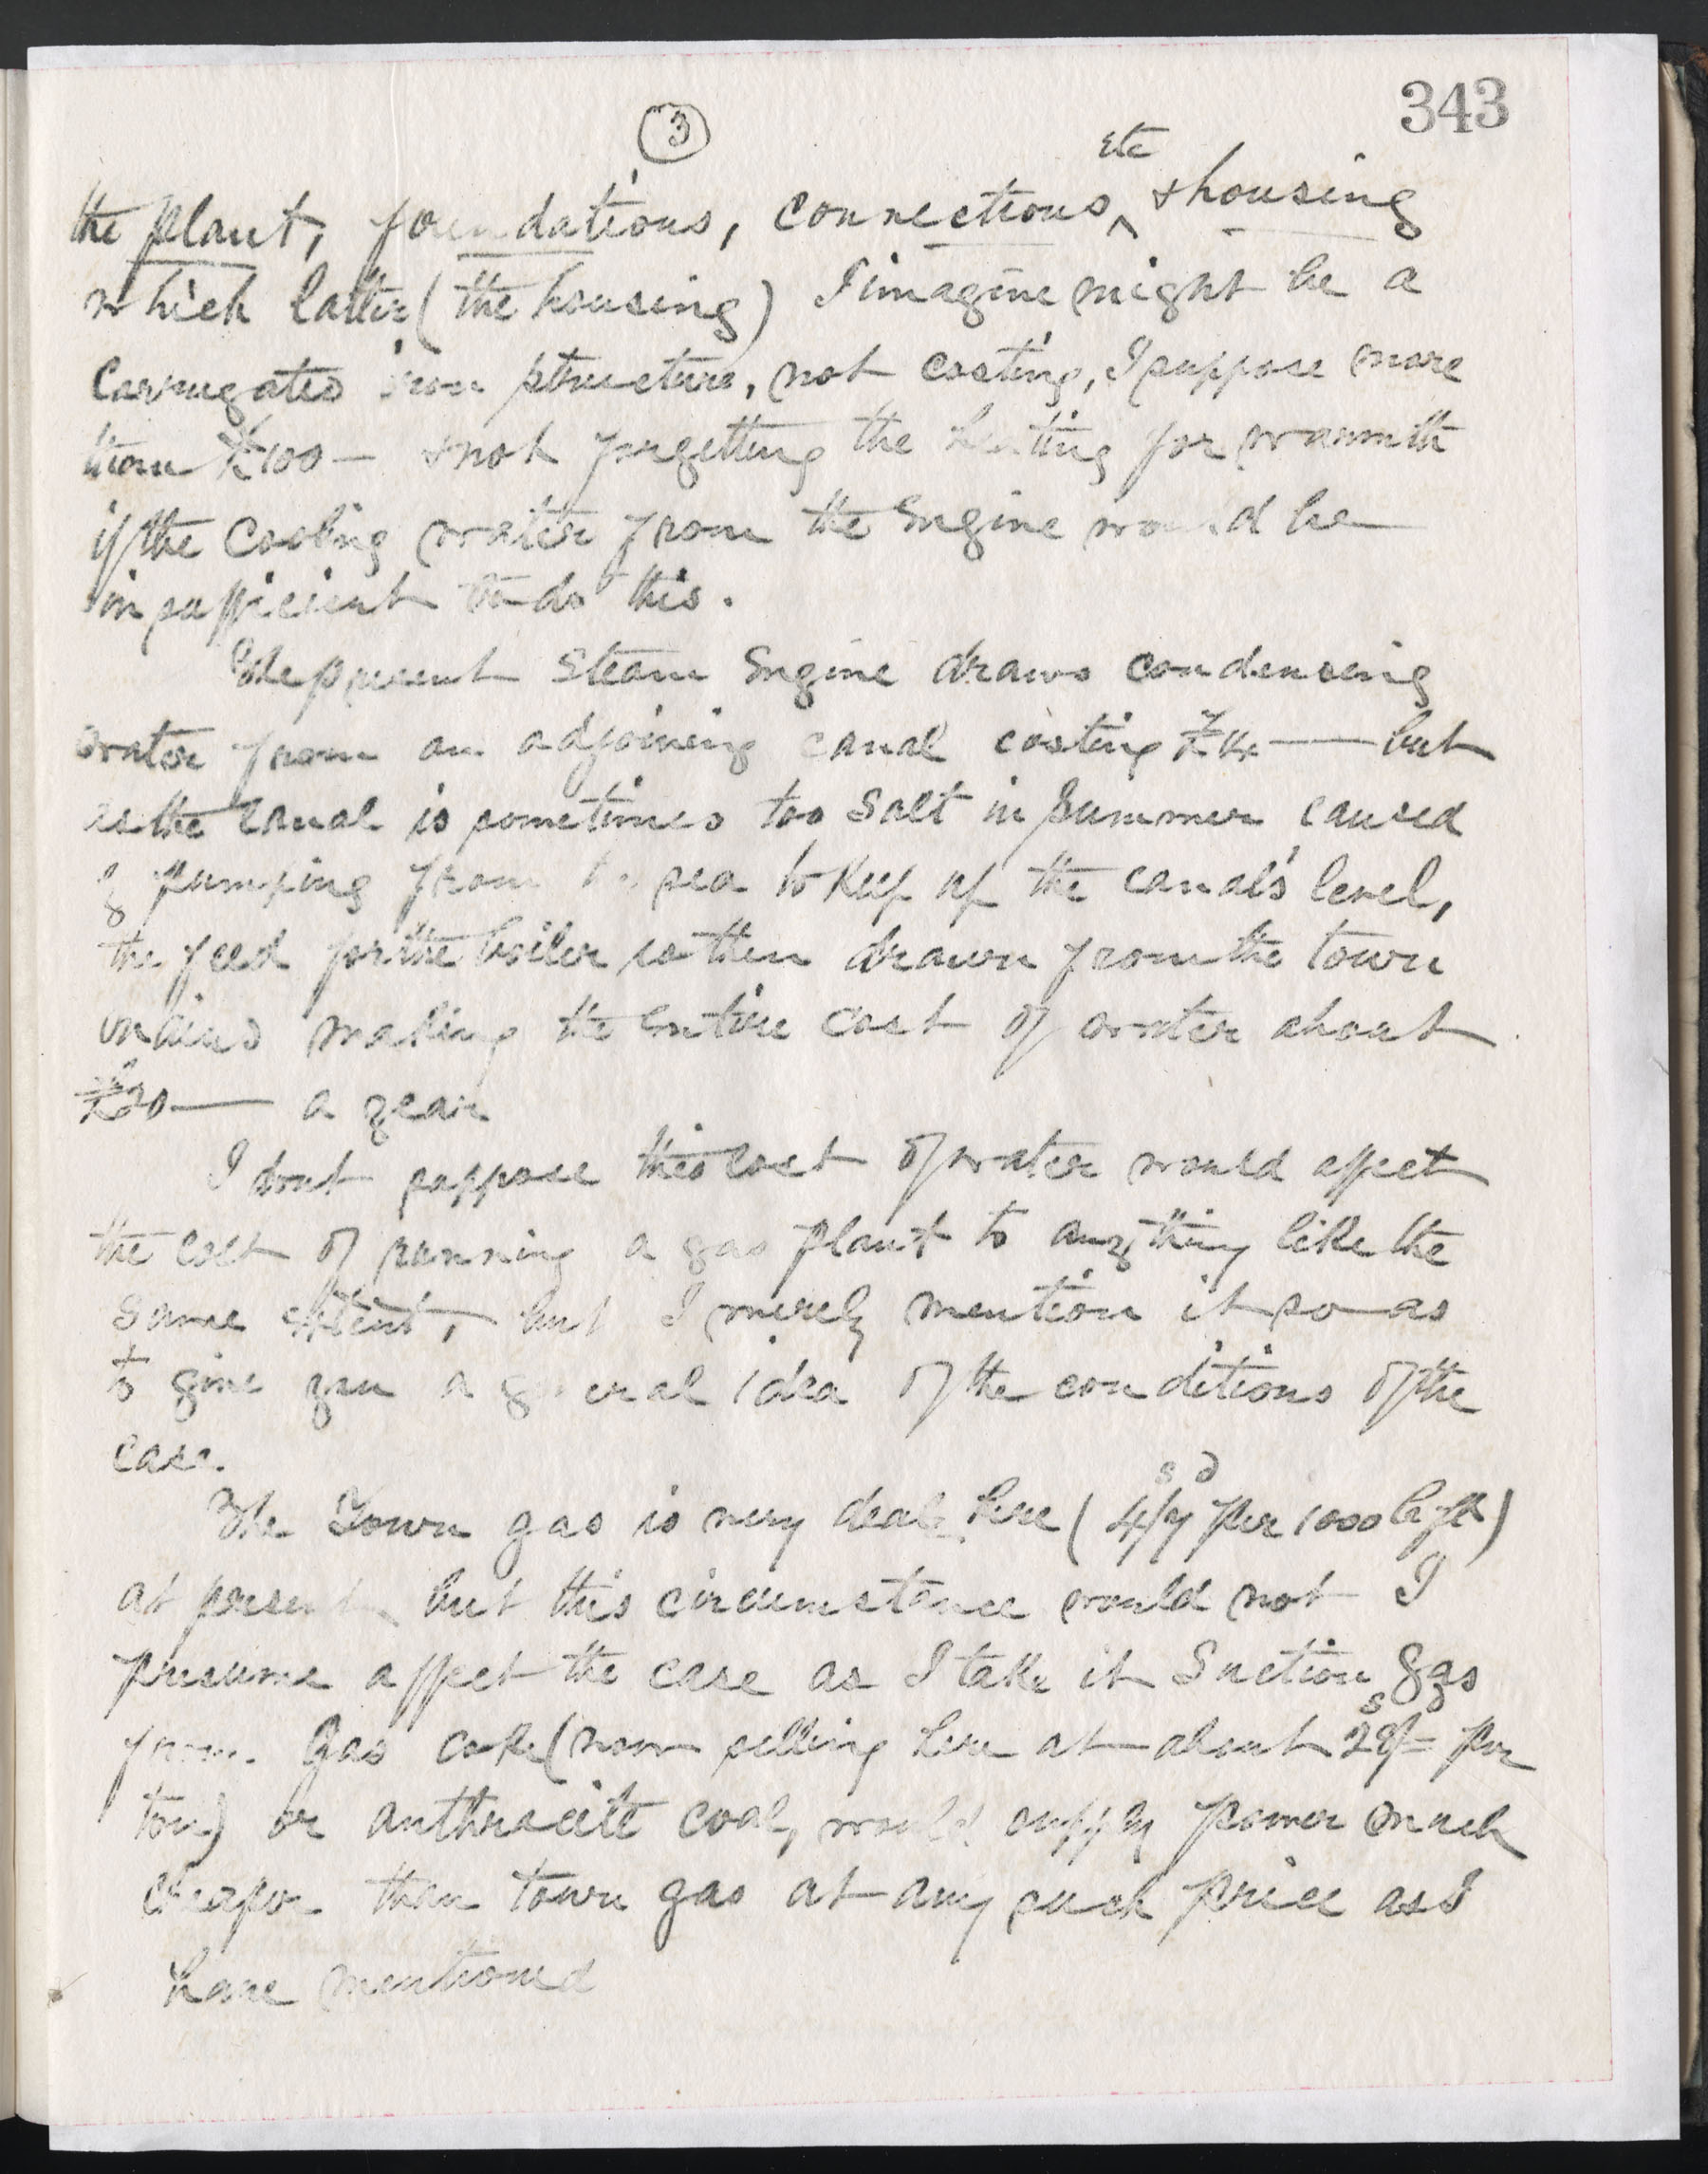 343
3
the plant, foundations, connections etc & housing
which latter (the housing) I imagine might be a
Corrugated iron structure, not costing, I suppose more
than £100 — & not forgetting the heating for warmth
if the Cooling water from the Engine would be
insufficient to do this.
The present Steam Engine draws condensing
water from an adjoining canal costing £14 — but
as the Canal is sometimes too Salt in Summer caused
by pumping from the sea to keep up the canal's level,
the feed for the boiler is then drawn from the town
mains making the Entire Cost of water about
£20 — a year
I dont suppose this cost of water would affect
the cost of running a gas plant to anything like the
Same extent, but I merely mention it so as
to give you a general idea of the conditions of the
case.
The Town gas is very dear here (4s/9d per 1000 c ft)
at present but this circumstance would not I
presume affect the case as I take it Suction Gas
from Gas coke (now selling here at about s/= per
ton) or anthracite coal, would supply power much
cheaper than town gas at any such price as I
have mentioned